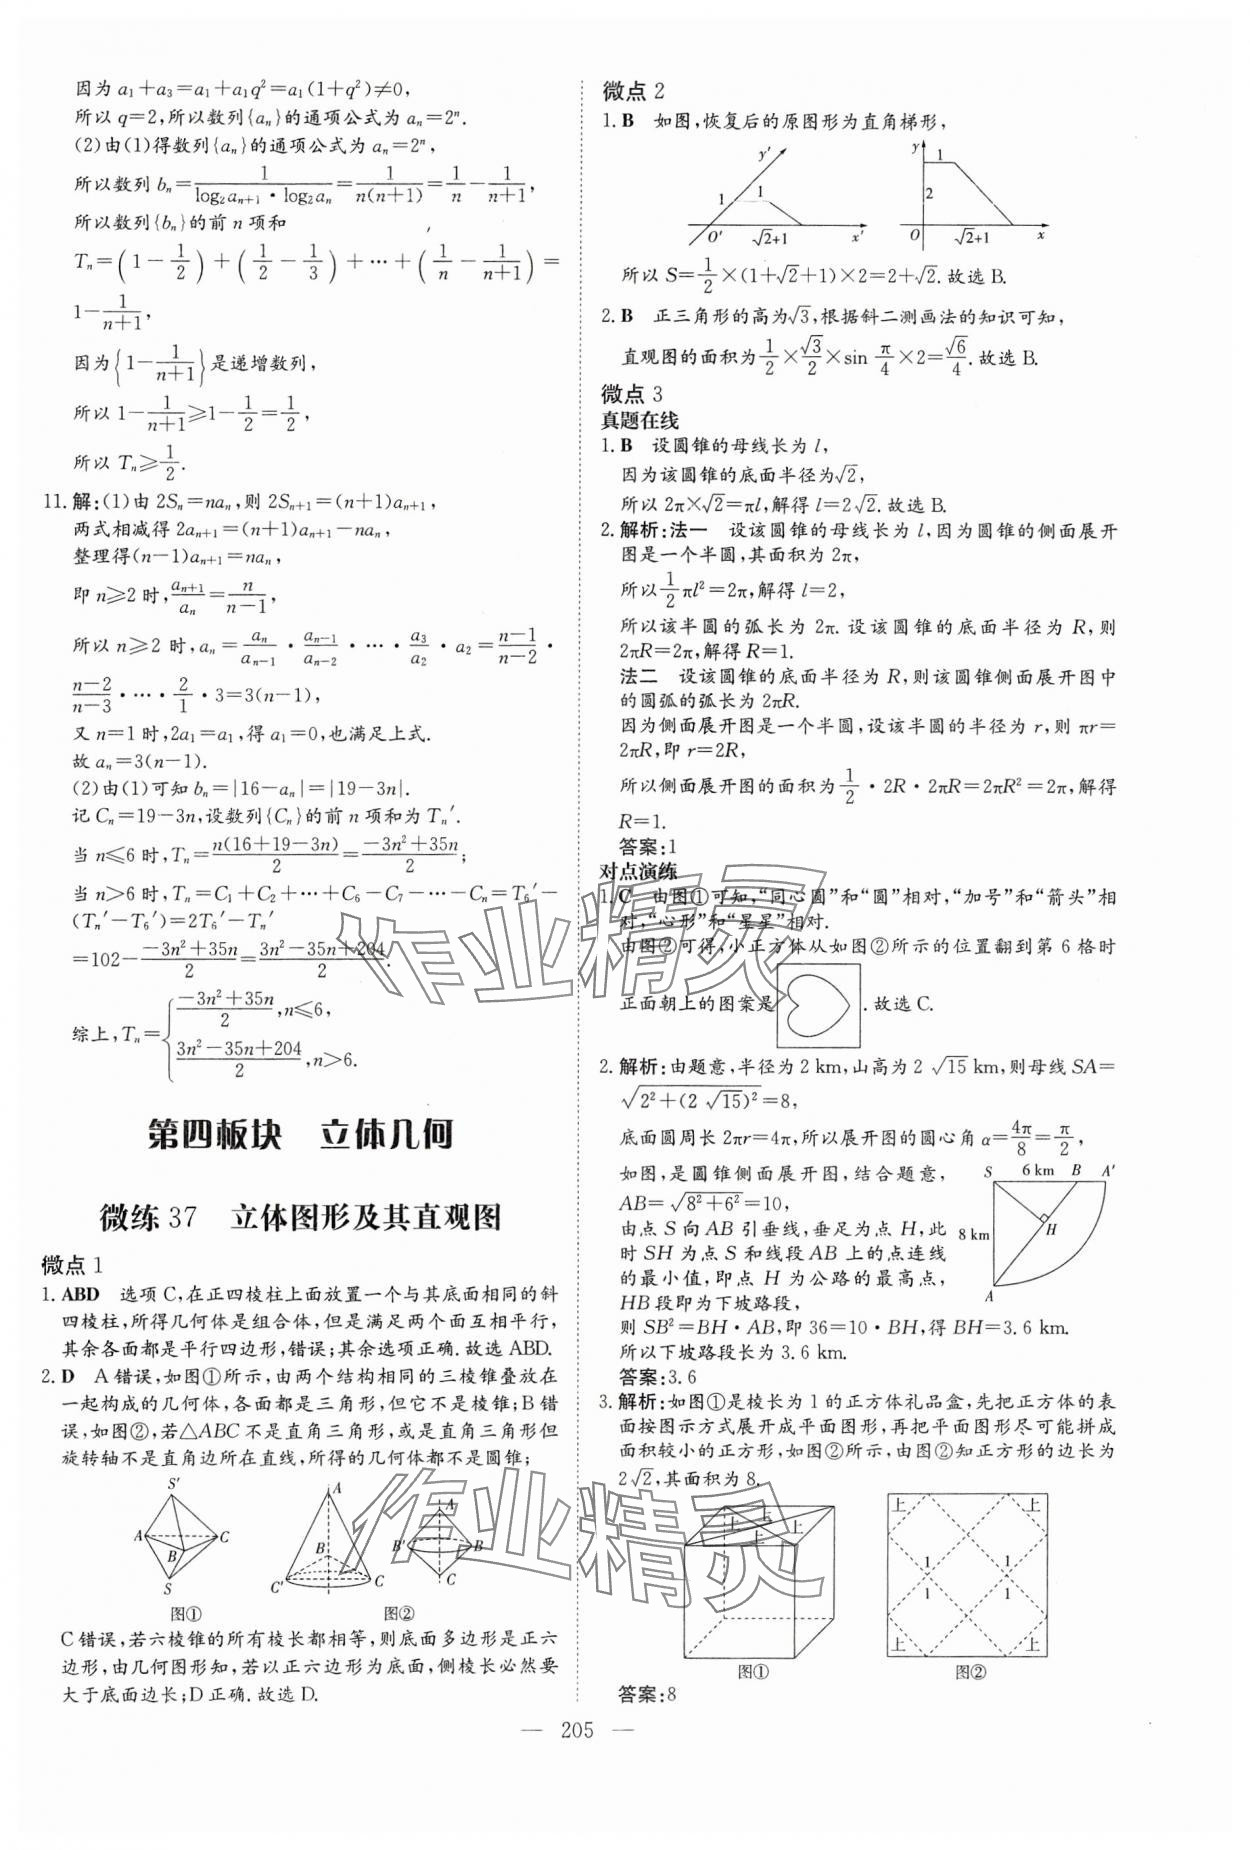 因为 a₁+a₃=a₁+a₁q²=a₁(1+q²)≠0,
所以 q=2,所以数列{aₙ}的通项公式为 aₙ=2ⁿ.
(2)由(1)得数列{aₙ}的通项公式为 aₙ=2ⁿ,
所以数列 bₙ=1/(log₂aₙ₊₁·log₂aₙ)=1/(n(n+1))=1/n-1/(n+1),
所以数列{bₙ}的前 n 项和
Tₙ=(1-1/2)+(1/2-1/3)+…+(1/n-1/(n+1))=
1-1/(n+1),
因为{1-1/(n+1)}是递增数列,
所以 1-1/(n+1)≥1-1/2=1/2,
所以 Tₙ≥1/2.
11.解:(1)由 2Sₙ=naₙ,则 2Sₙ₊₁=(n+1)aₙ₊₁,
两式相减得 2aₙ₊₁=(n+1)aₙ₊₁-naₙ,
整理得(n-1)aₙ₊₁=naₙ,
即 n≥2 时,aₙ₊₁/aₙ=n/(n-1),
所以 n≥2 时,aₙ=aₙ/aₙ₋₁·aₙ₋₁/aₙ₋₂·…·a₃/a₂·a₂=(n-1)/(n-2)·
(n-2)/(n-3)·…·2/1·3=3(n-1),
又 n=1 时,2a₁=a₁,得 a₁=0,也满足上式.
故 aₙ=3(n-1).
(2)由(1)可知 bₙ=|16-aₙ|=|19-3n|.
记 Cₙ=19-3n,设数列{Cₙ}的前 n 项和为 Tₙ′.
当 n≤6 时,Tₙ=n(16+19-3n)/2=(-3n²+35n)/2;
当 n>6 时,Tₙ=C₁+C₂+…+C₆-C₇-…-Cₙ=T₆′-
(Tₙ′-T₆′)=2T₆′-Tₙ′
=102-(-3n²+35n)/2=(3n²-35n+204)/2.
综上,Tₙ={(-3n²+35n)/2,n≤6,
(3n²-35n+204)/2,n>6.
第四板块 立体几何
微练 37 立体图形及其直观图
微点 1
1.ABD 选项 C,在正四棱柱上面放置一个与其底面相同的斜
四棱柱,所得几何体是组合体,但是满足两个面互相平行,
其余各面都是平行四边形,错误;其余选项正确.故选 ABD.
2.D A 错误,如图①所示,由两个结构相同的三棱锥叠放在
一起构成的几何体,各面都是三角形,但它不是棱锥;B 错
误,如图②,若△ABC 不是直角三角形,或是直角三角形但
旋转轴不是直角边所在直线,所得的几何体都不是圆锥;
S′
A
B
C
S
图①
A
B
C′
C
A
B′
B
C
图②
C 错误,若六棱锥的所有棱长都相等,则底面多边形是正六
边形,由几何图形知,若以正六边形为底面,侧棱长必然要
大于底面边长;D 正确.故选 D.
微点 2
1.B 如图,恢复后的原图形为直角梯形,
y′
1
1
O′
√2+1
x′
y
1
2
O
√2+1
x
所以 S=1/2×(1+√2+1)×2=2+√2.故选 B.
2.B 正三角形的高为√3,根据斜二测画法的知识可知,
直观图的面积为1/2×√3/2×sin π/4×2=√6/4.故选 B.
微点 3
真题在线
1.B 设圆锥的母线长为 l,
因为该圆锥的底面半径为√2,
所以 2π×√2=πl,解得 l=2√2.故选 B.
2.解析:法一 设该圆锥的母线长为 l,因为圆锥的侧面展开
图是一个半圆,其面积为 2π,
所以1/2πl²=2π,解得 l=2,
所以该半圆的弧长为 2π.设该圆锥的底面半径为 R,则
2πR=2π,解得 R=1.
法二 设该圆锥的底面半径为 R,则该圆锥侧面展开图中
的圆弧的弧长为 2πR.
因为侧面展开图是一个半圆,设该半圆的半径为 r,则 πr=
2πR,即 r=2R,
所以侧面展开图的面积为1/2·2R·2πR=2πR²=2π,解得
R=1.
答案:1
对点演练
1.C 由图①可知,“同心圆”和“圆”相对,“加号”和“箭头”相
对,“心形”和“星星”相对.
由图②可得,小正方体从如图②所示的位置翻到第 6 格时
正面朝上的图案是 .故选 C.
2.解析:由题意,半径为 2 km,山高为 2√15 km,则母线 SA=
√(2²+(2√15)²)=8,
底面圆周长 2πr=4π,所以展开图的圆心角 α=4π/8=π/2,
如图,是圆锥侧面展开图,结合题意,
AB=√(8²+6²)=10,
由点 S 向 AB 引垂线,垂足为点 H,此
时 SH 为点 S 和线段 AB 上的点连线
的最小值,即点 H 为公路的最高点,
HB 段即为下坡路段,
S
6 km
B
A′
8 km
H
A
则 SB²=BH·AB,即 36=10·BH,得 BH=3.6 km.
所以下坡路段长为 3.6 km.
答案:3.6
3.解析:如图①是棱长为 1 的正方体礼品盒,先把正方体的表
面按图示方式展开成平面图形,再把平面图形尽可能拼成
面积较小的正方形,如图②所示,由图②知正方形的边长为
2√2,其面积为 8.
上
上
上
上
图①
上
上
1
1
1
1
上
上
图②
答案:8
— 205 —
作业精灵
作业精灵